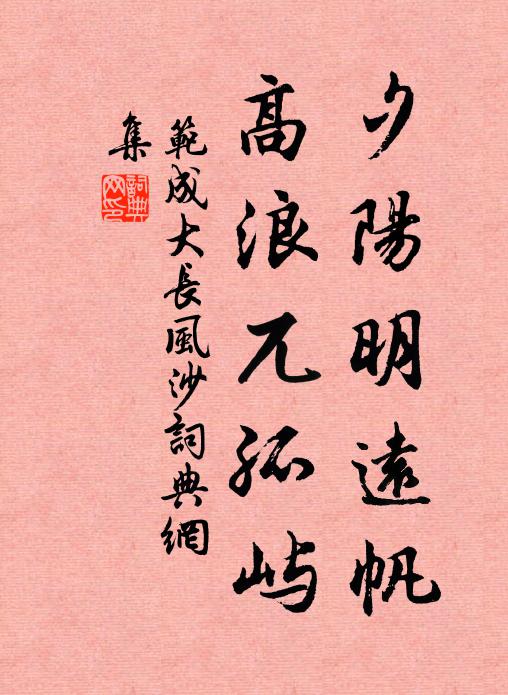 夕陽明遠帆
高浪兀孤屿
範成大長風沙詞典網
集
詞典
网印